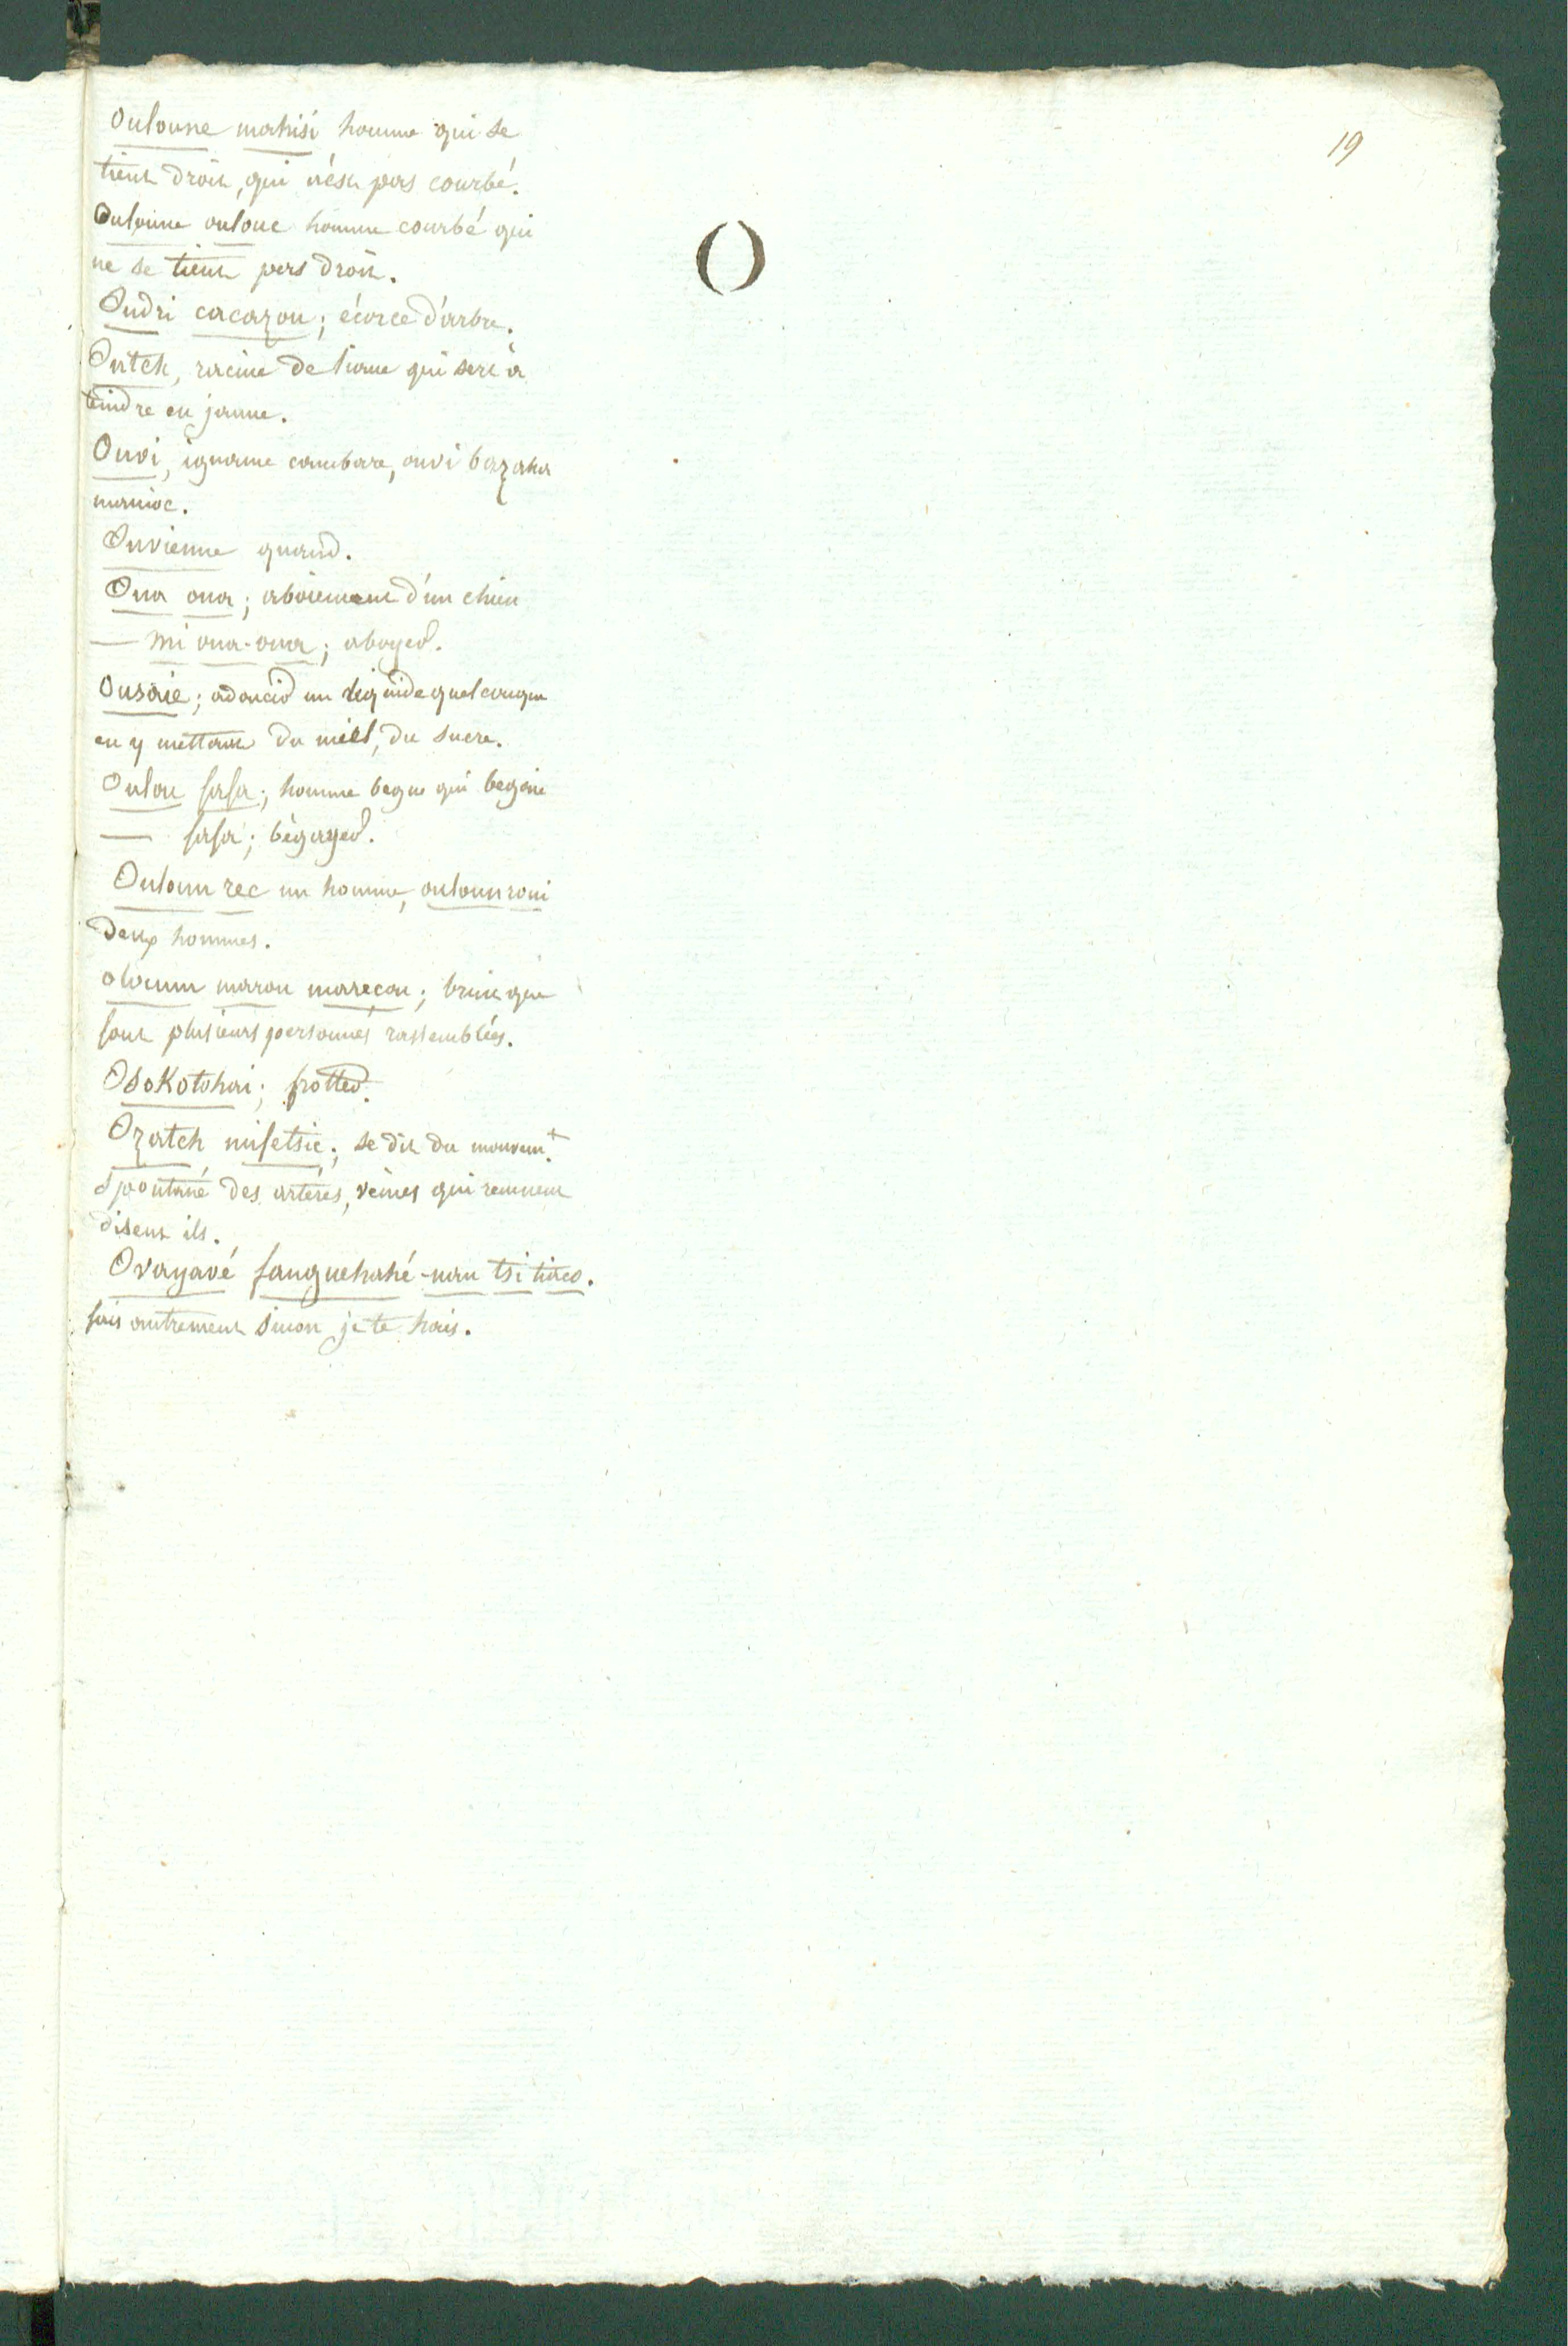 19
O
Ouloune mahisi homme qui se
tient droit, qui n'ést pas courbé.
Ouloune oulouc homme courbé qui
ne se tient pas droit.
Oudri cacazou; écorce d'arbre.
Outch, racine de liane qui sert à
teindre en jaune.
Ouvi, igname cambare, ouvi bazaha
manioc.
Ouvienne quand.
Oua oua; aboiement d'un chien
— mi oua-oua; aboyer.
Ousaie; adoucir un liquide quelconque
en y mettant du miel, du sucre.
Oulou fafa; homme begue qui begaie
— fafa; bégayer.
Ouloun rec un homme, ouloun roui
deux hommes.
olounn marou marecou; bruit que
font plusieurs personnes rassemblées.
Osokotohai; frotter.
Ozatch mifetsic; se dit du mouvemt.
spontané des artéres, veines qui remuent
disent ils.
Ovayavé fanguehahé-nau tsi tiaco.
fais autrement sinon je te hais.